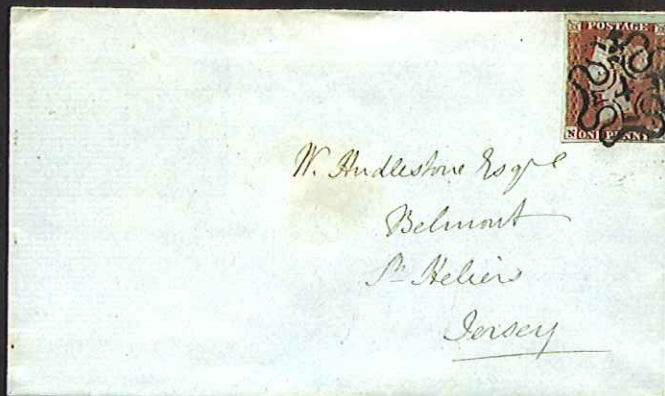 POSTAGE
N ONE PENNY
W. Hudlestone Esqre
Belmont
St Heliers
Jersey